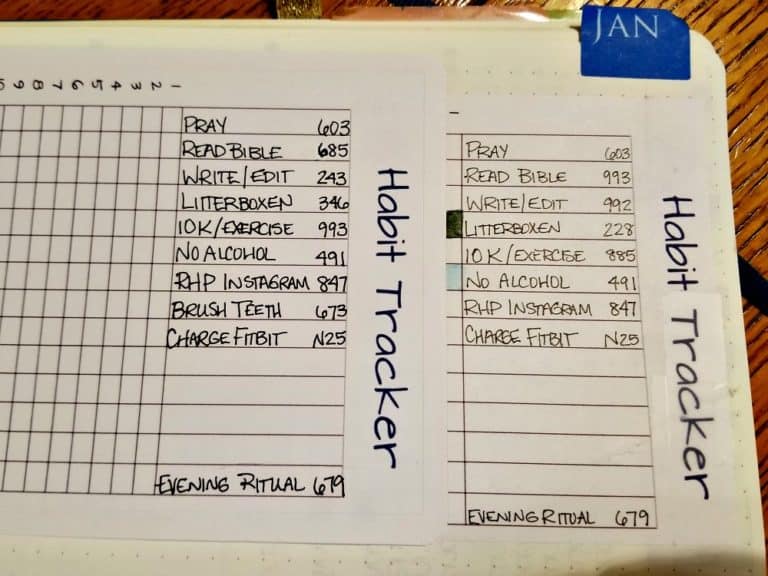 JAN
1 2 3 4 5 6 7 8 9
PRAY 603
READ BIBLE 685
WRITE/EDIT 243
LITTERBOXEN 346
10K/EXERCISE 993
NO ALCOHOL 491
RHP INSTAGRAM 847
BRUSH TEETH 673
CHARGE FITBIT N25
EVENING RITUAL 679
Habit Tracker
PRAY 603
READ BIBLE 993
WRITE/EDIT 992
LITTERBOXEN 228
10K/EXERCISE 885
NO ALCOHOL 491
RHP INSTAGRAM 847
CHARGE FITBIT N25
EVENING RITUAL 679
Habit Tracker